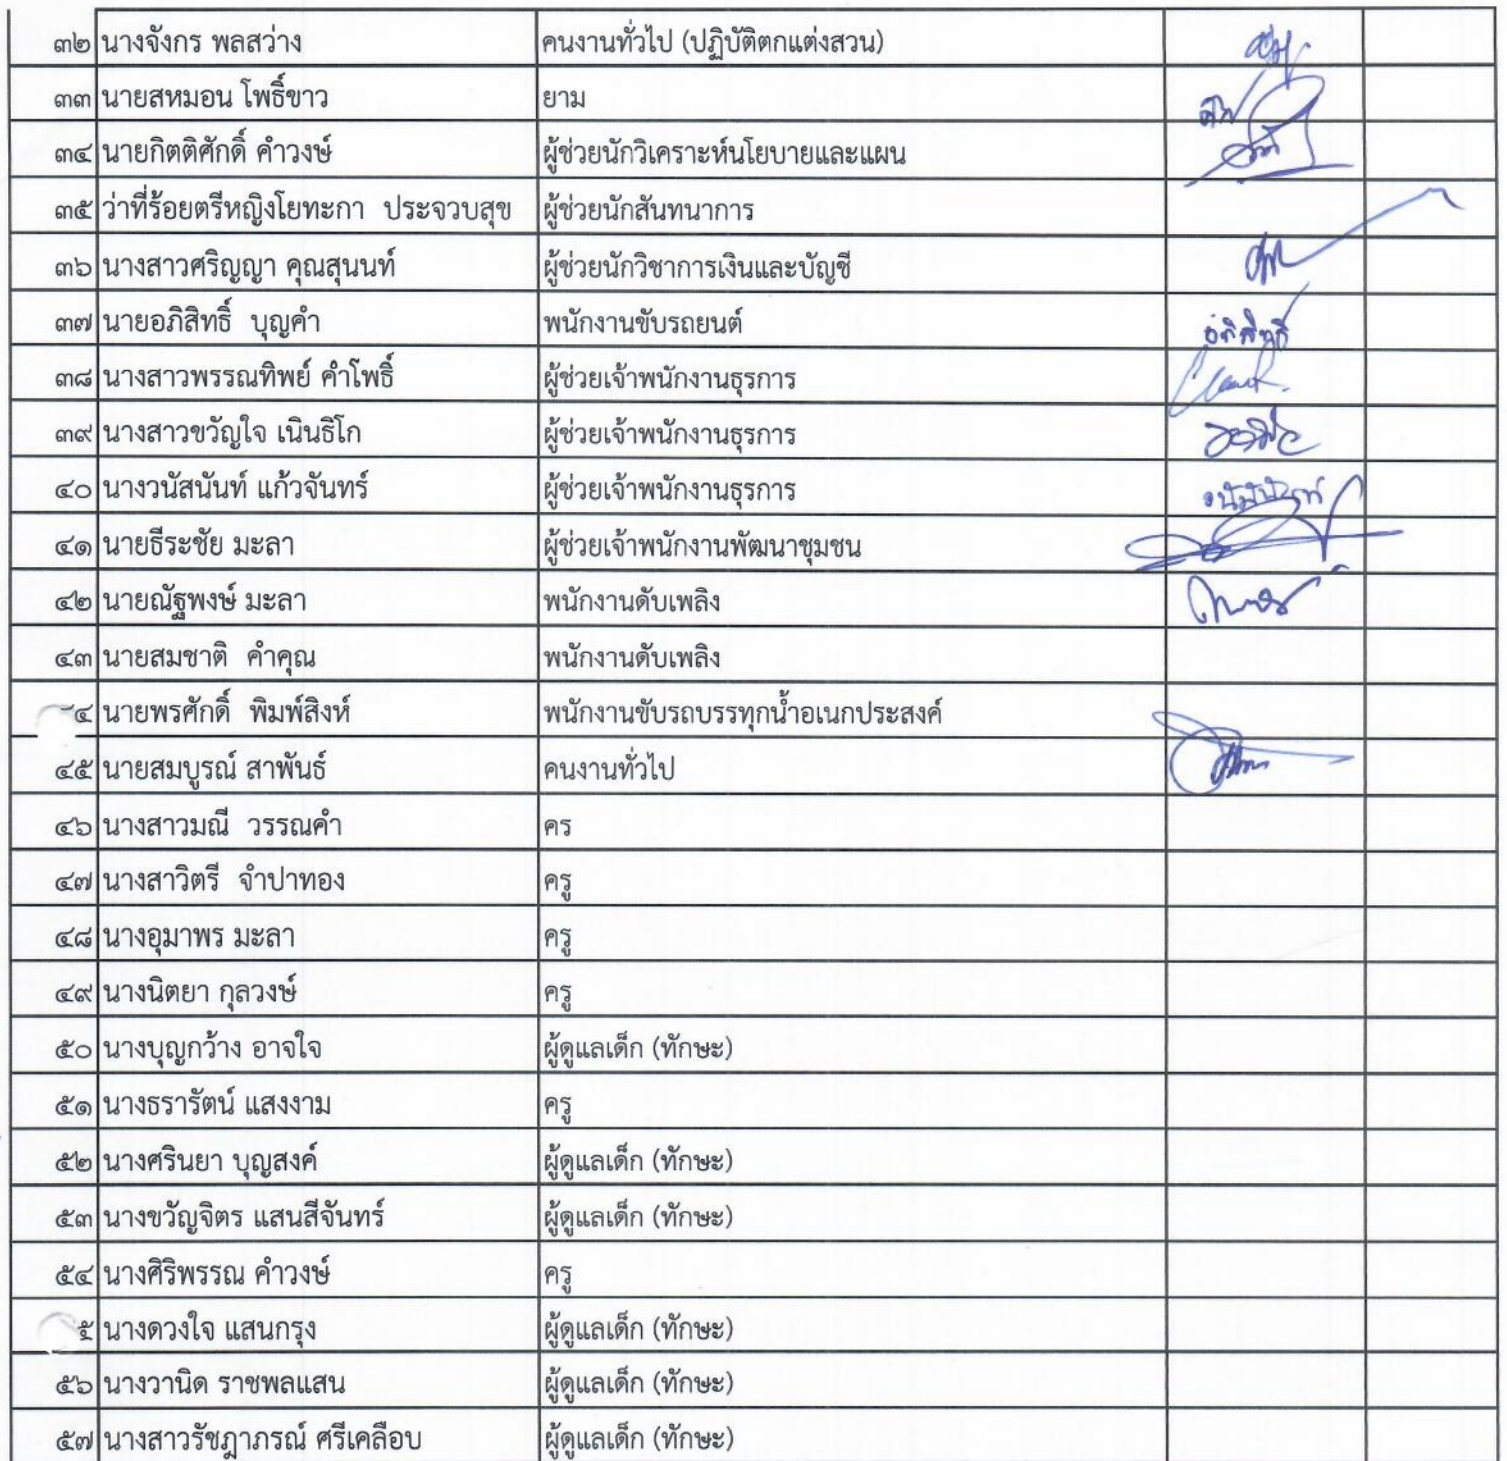 ๓๒ นางจังกร พลสว่าง คนงานทั่วไป (ปฏิบัติตกแต่งสวน)
๓๓ นายสหมอน โพธิ์ขาว ยาม
๓๔ นายกิตติศักดิ์ คำวงษ์ ผู้ช่วยนักวิเคราะห์นโยบายและแผน
๓๕ ว่าที่ร้อยตรีหญิงโยทะกา ประจวบสุข ผู้ช่วยนักสันทนาการ
๓๖ นางสาวศริญญา คุณสุนนท์ ผู้ช่วยนักวิชาการเงินและบัญชี
๓๗ นายอภิสิทธิ์ บุญคำ พนักงานขับรถยนต์ อภิสิทธิ์
๓๘ นางสาวพรรณทิพย์ คำโพธิ์ ผู้ช่วยเจ้าพนักงานธุรการ
๓๙ นางสาวขวัญใจ เนินธิโก ผู้ช่วยเจ้าพนักงานธุรการ
๔๐ นางวนัสนันท์ แก้วจันทร์ ผู้ช่วยเจ้าพนักงานธุรการ
๔๑ นายธีระชัย มะลา ผู้ช่วยเจ้าพนักงานพัฒนาชุมชน
๔๒ นายณัฐพงษ์ มะลา พนักงานดับเพลิง
๔๓ นายสมชาติ คำคุณ พนักงานดับเพลิง
๔ นายพรศักดิ์ พิมพ์สิงห์ พนักงานขับรถบรรทุกน้ำอเนกประสงค์
๔๕ นายสมบูรณ์ สาพันธ์ คนงานทั่วไป
๔๖ นางสาวมณี วรรณคำ คร
๔๗ นางสาวิตรี จำปาทอง ครู
๔๘ นางอุมาพร มะลา ครู
๔๙ นางนิตยา กุลวงษ์ ครู
๕๐ นางบุญกว้าง อาจใจ ผู้ดูแลเด็ก (ทักษะ)
๕๑ นางธรารัตน์ แสงงาม ครู
๕๒ นางศรินยา บุญสงค์ ผู้ดูแลเด็ก (ทักษะ)
๕๓ นางขวัญจิตร แสนสีจันทร์ ผู้ดูแลเด็ก (ทักษะ)
๕๔ นางศิริพรรณ คำวงษ์ ครู
๕ นางดวงใจ แสนกรุง ผู้ดูแลเด็ก (ทักษะ)
๕๖ นางวานิด ราชพลแสน ผู้ดูแลเด็ก (ทักษะ)
๕๗ นางสาวรัชฎาภรณ์ ศรีเคลือบ ผู้ดูแลเด็ก (ทักษะ)